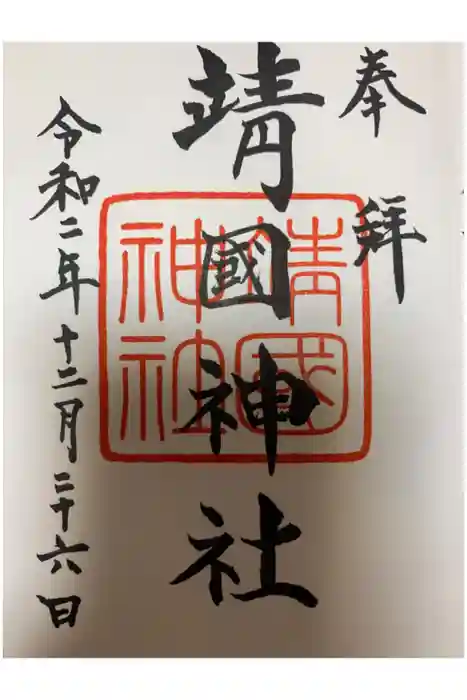 奉拜
靖國神社
靖國
神社
令和二年十二月二十六日